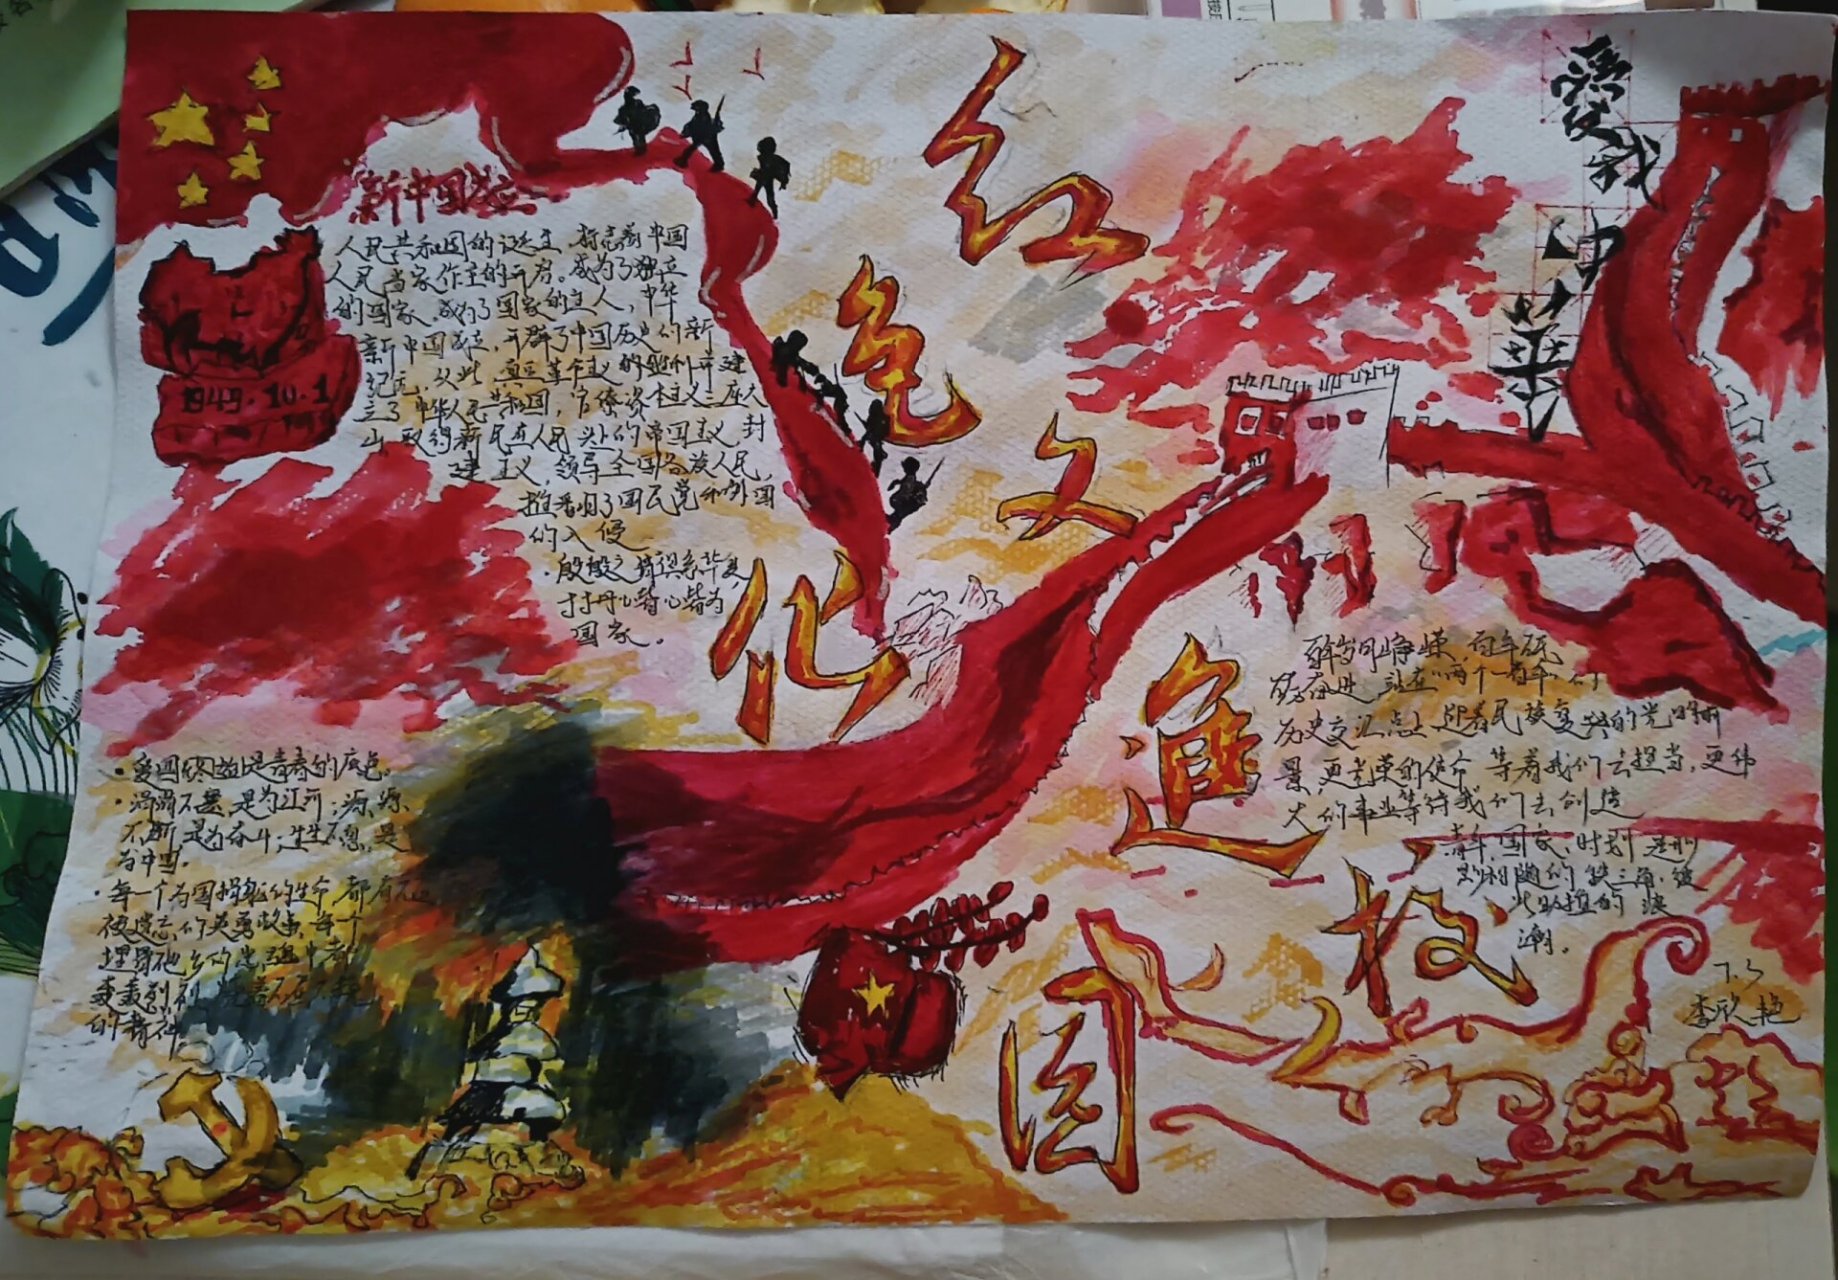 红色文化进校园
爱我中华
新中国成立
1949.10.1
人民共和国的诞生,标志着中国
人民当家作主的开始。成为了独立
的国家,成为了国家的主人,中华
新中国成立,开辟了中国历史的新
纪元,从此,主义革命主义的胜利并建
立了中华人民共和国,官僚资本主义三座大
山取得新民在人民头上的帝国主义封
建主义,领导全国各族人民,
推番旧了国民党和外国
的入侵
·殷殷之情俱系华夏,
寸寸丹心皆心皆为
国家。
·爱国终始是青春的底色。
·涓涓不塞,是为江河;源源
不断,是为奋斗;生生不息,是
为中国。
·每一个为国捐躯的生命都有不应
被遗忘的英勇故事,每个
埋骨他乡的忠魂中都
轰轰烈烈
的精神
百年岁月峥嵘 百年砥
砺奋进 站在"两个一百年"的
历史交汇点上 迎着民族复兴的光明前
景,更光荣的使命等着我们去担当,更伟
大的事业等待我们去创造
青年,国家,时刻是形
影相随的铁三角,彼
此助推的浪
潮。
7.3
李欣艳